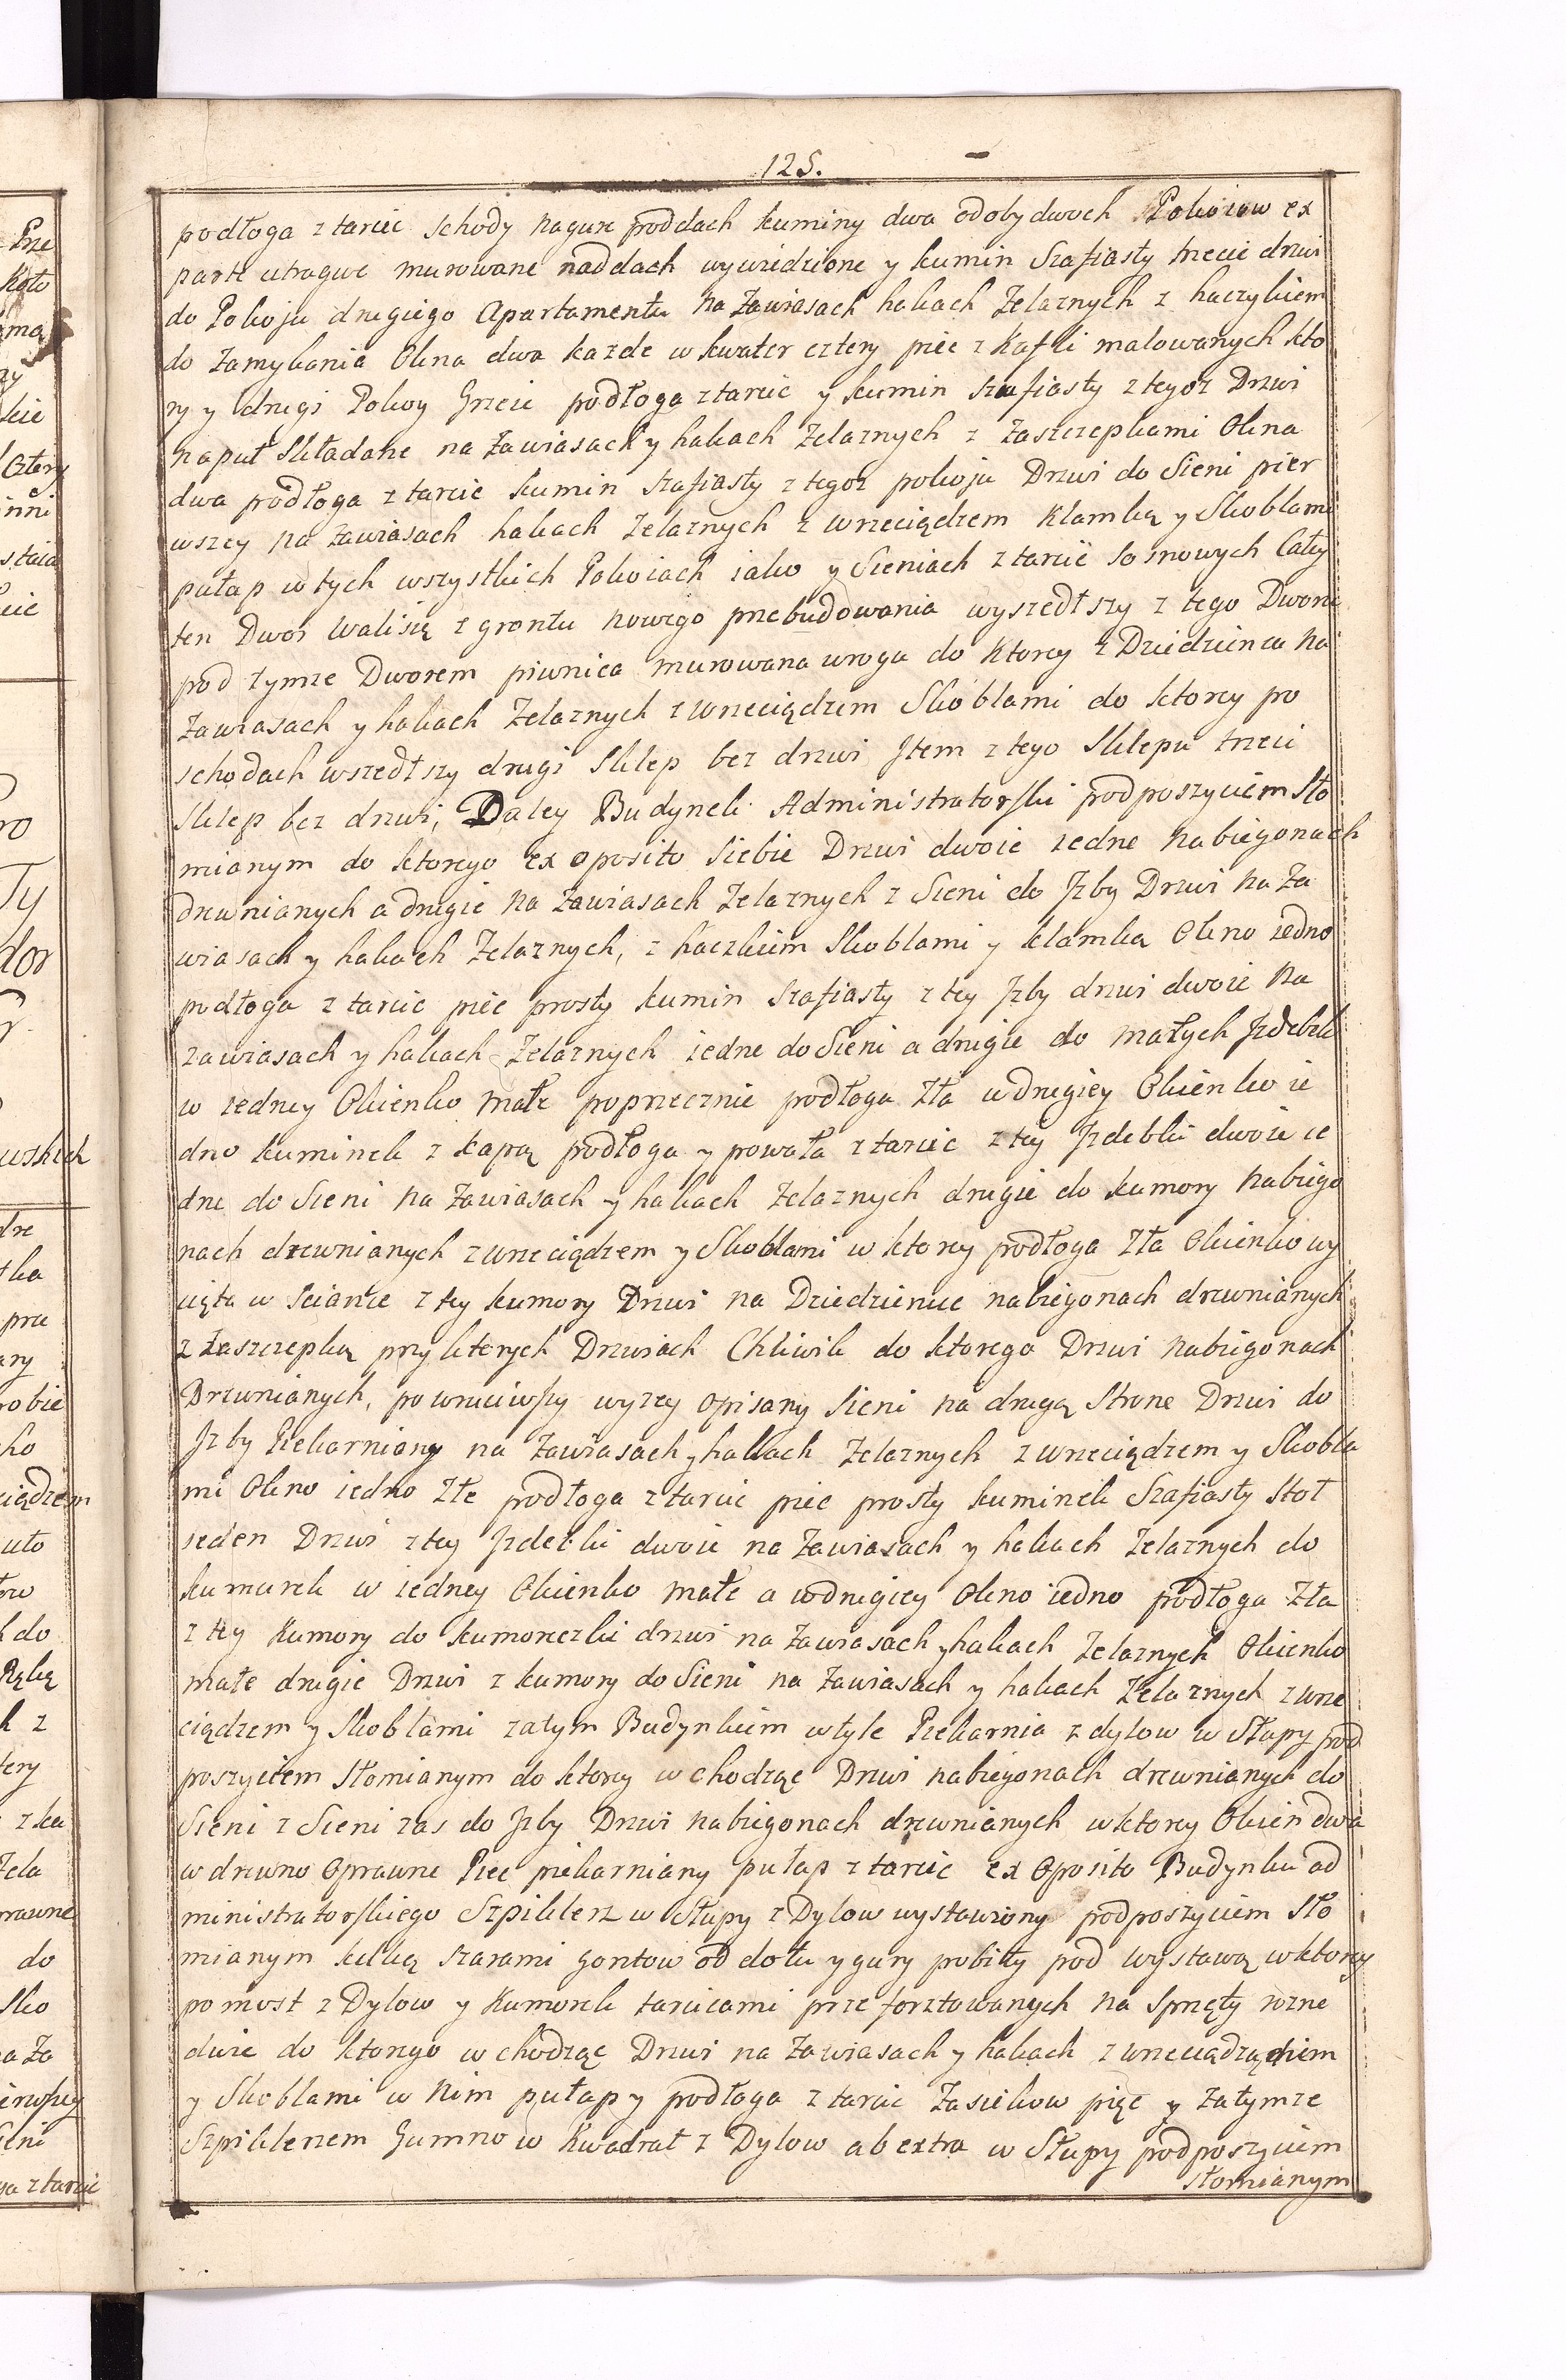 125.
podłoga z tarcic schody nagure poddach kuminy dwa odobydwoch Pokoiow ex
parte utraque murowane naddach wywidzione y kumin Szafiasty trzecie drzwi
do Pokoju drugiego Apartamentu na Zawiasach hakach Zelaznych z haczykiem
do Zamykania Okna dwa każde w kwater cztery piec z Kafli malowanych kto
ry y drugi Pokoy Grzeie podłoga z tarcic y kumin szafiasty z tegoz Drzwi
napuł Składane na Zawiasach y hakach Zelaznych z Zaszczepkami Okna
dwa podłoga z tarcic kumin szafiasty z tegoz pokoju Drzwi do Sieni pier
wszey na Zawiasach hakach Zelaznych z wrzeciądzem Klamką y Skoblami
pułap w tych wszystkich Pokoiach iako y Sieniach z tarcic Sosnowych Cały
ten Dwor wali się z grontu nowego przebudowania wyszedłszy z tego Dworu
pod tymze Dworem piwnica murowana wrogu do Ktorey z Dziedzinca na
Zawiasach y hakach Zelaznych z wrzeciądzem Skoblami do ktorey po
schodach wszedłszy drugi Sklep bez drzwi Item z tego Sklepu trzeci
Sklep bez drzwi, Daley Budynek Administratorski podposzyciem Sło
mianym do ktorego ex oposito Siebie Drzwi dwoie iedne nabiegonach
drewnianych a drugie na Zawiasach Zelaznych z Sieni do Jzby Drzwi na Za
wiasach y hakach Zelaznych, z haczkiem Skoblami y klamką Okno iedno
podłoga z tarcic piec prosty kumin Szafiasty z tey Jzby drzwi dwoie na
zawiasach y hakach Zelaznych iedne do Sieni a drugie do małych Jzdebek
w iedney Okienko małe poprzecznie podłoga Zła w drugiey Okienko ie
dno kuminek z kapą podłoga y powała z tarcic z tey Jzdebki dwoie ie
dne do Sieni na Zawiasach y hakach Zelaznych drugie do kumory nabiego
nach drzewnianych z wrzeciądzem y Skoblami w ktorey podłoga Zła Okienko wy
cięte w Scianie z tey kumory Drzwi na Dziedziniec nabiegonach drewnianych
z Zaszczepką przy kterych Drzwiach Chliwik do ktorego Drzwi nabiegonach
Drewnianych, powruciwszy wyzey opisany Sieni na drugą Strone Drzwi do
Jzby Piekarniany na Zawiasach y hakach Zelaznych z wrzeciądzem y Skobla
mi Okno iedno Złe podłoga z tarcic piec prosty kuminek Szafiasty Stoł
ieden Drzwi z tey Jzdebki dwoie na Zawiasach y hakach Zelaznych do
kumurek w iedney Okienko małe a w drugiey Okno iedno podłoga Zła
z tey Kumory do kumoreczki drzwi na Zawiasach y hakach Zelaznych Okienko
małe drugie Drzwi z kumory do Sieni na Zawiasach y hakach Zelaznych z wrze
ciądzem y Skoblami zatym Budynkiem wtyle Piekarnia z dylow w Słupy pod
poszyciem Słomianym do ktorey wchodząc Drzwi nabiegonach drewnianych do
Sieni z Sieni zas do Jzby Drzwi nabiegonach drewnianych w ktorey Okien dwa
w drewno Oprawne Piec piekarniany pułap z tarcic ex Oposito Budynku ad
ministratorskiego Szpiklerz w Słupy z Dylow wystawiony podposzyciem Sło
mianym kilką szarami gontow od dołu y gury pobity pod wystawą w ktorey
pomost z Dylow y Kumorek tarcicami przeforsztowanych na Sprzęty rozne
dwie do ktorego wchodząc Drzwi na Zawiasach y hakach z wrzeciądządiem
y Skoblami w Nim pułap y podłoga z tarcic Zasiekow pięc y Zatymze
Szpiklerzem Gumno w Kwadrat z Dylow ab extra w Słupy podposzyciem
Słomianym